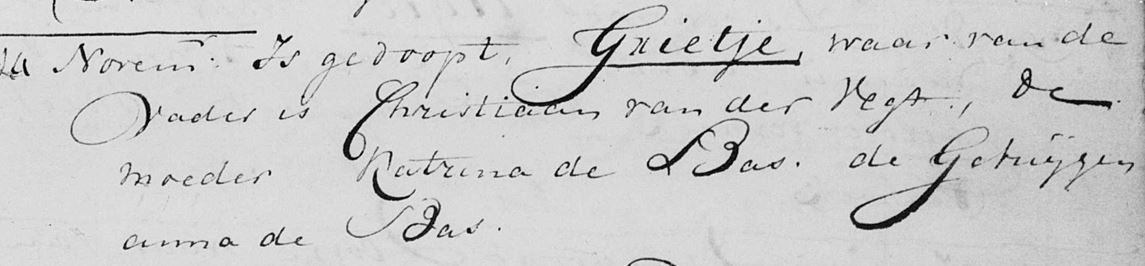 14 Novem: Is gedoopt, Grietje, waar van de
Vader is Christiaan van der Vegt, de
moeder Katrina de Bas. de Getuijgen
anna de Bas.